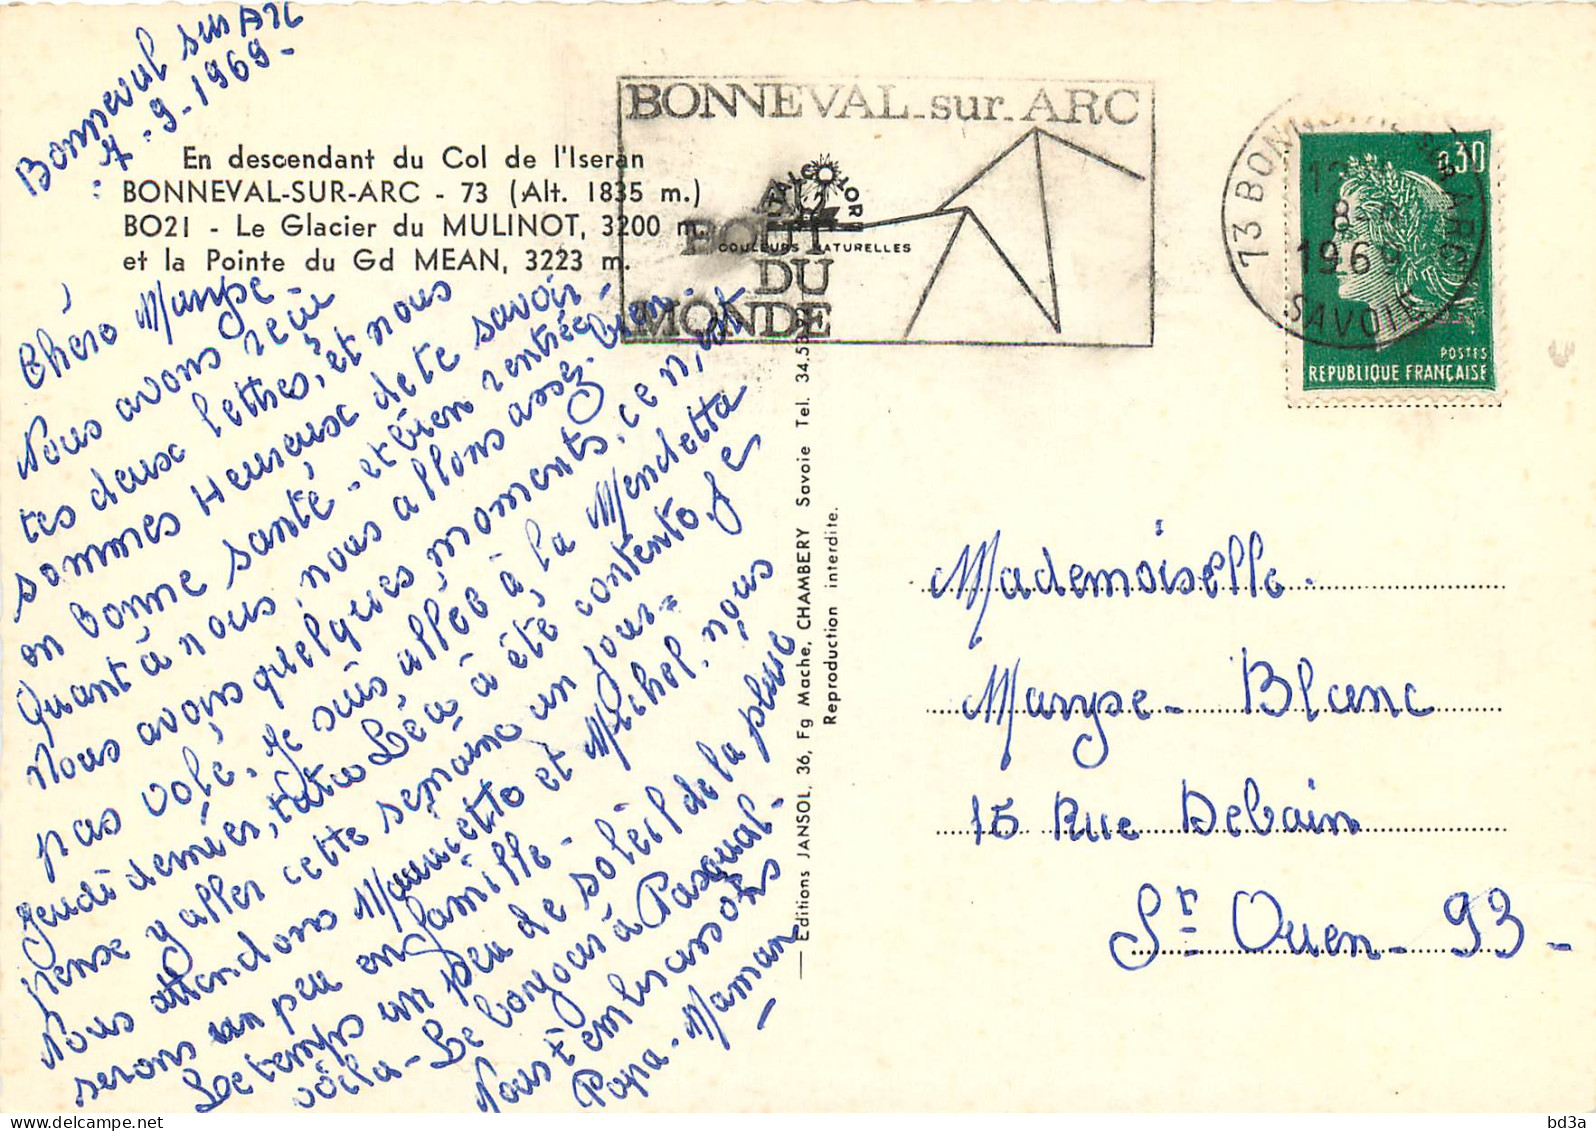 Bonneval sur Arc
7-9-1969-
En descendant du Col de l'Iseran
BONNEVAL-SUR-ARC - 73 (Alt. 1835 m.)
BO21 - Le Glacier du MULINOT, 3200 m.
et la Pointe du Gd MEAN, 3223 m.
Chère Maryse-
Nous avons reçu
tes deux lettres, et nous
sommes Heureux de te savoir
en bonne santé - et bien rentrée-
Quant à nous, nous allons assez bien.
Nous avons quelques moments, ce n'est
pas volé. Je suis allée à la Mendetta
Jeudi dernier, tatie Léa à été contente. Je
pense y aller cette semaine un jour=
Nous attendons Mauricette et Michel. nous
serons un peu en famille-
Le temps un peu de soleil de la pluie
voila- Le bonjour à Pasqual-
Nous t'embrassons
Papa-Maman
BONNEVAL-sur-ARC
AU
BOUT
DU
MONDE
COULEURS NATURELLES
73 BONNEVAL SUR ARC
1969
SAVOIE
0,30
POSTES
REPUBLIQUE FRANÇAISE
Editions JANSOL, 36, Fg Mache, CHAMBERY Savoie Tel. 34.53
Reproduction interdite.
Mademoiselle.
Maryse- Blanc
15 Rue Debain
St Ouen- 93-
delcampe.net
bd3a